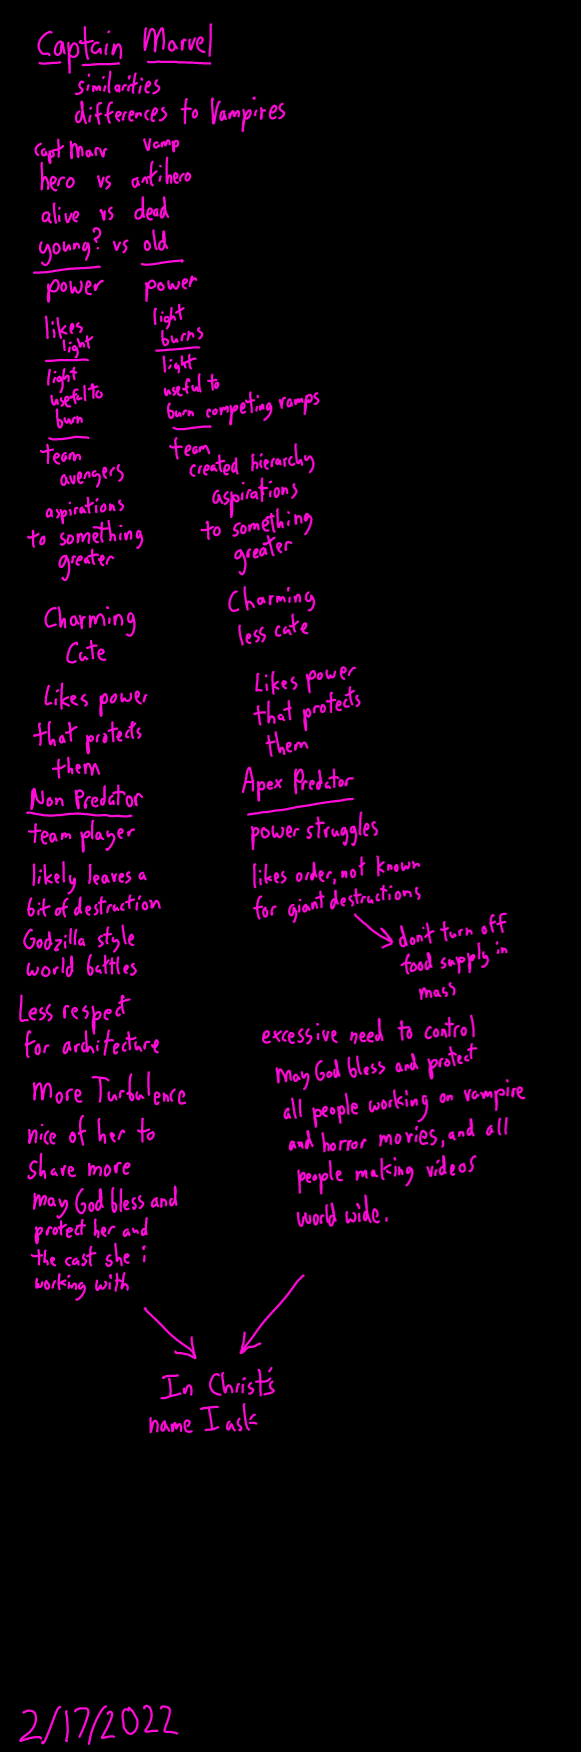 Captain Marvel
similarities
differences to Vampires
Capt Marv Vamp
hero vs antihero
alive vs dead
young? vs old
power power
likes
light
light
burns
light
useful to
burn
light
useful to
burn competing vamps
team
avengers
aspirations
to something
greater
team
created hierarchy
aspirations
to something
greater
Charming
Cute
Charming
less cute
Likes power
that protects
them
Likes power
that protects
them
Non Predator
team player
likely leaves a
bit of destruction
Godzilla style
world battles
Less respect
for architecture
More Turbulence
nice of her to
share more
may God bless and
protect her and
the cast she i
working with
Apex Predator
power struggles
likes order, not known
for giant destructions
don't turn off
food supply in
mass
excessive need to control
May God bless and protect
all people working on vampire
and horror movies, and all
people making videos
world wide.
In Christ's
name I ask
2/17/2022